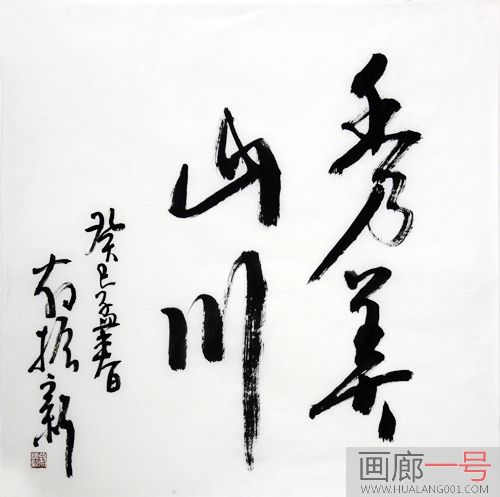 秀美
山川
癸巳孟春
振新
画廊一号
WWW.HUALANG001.COM